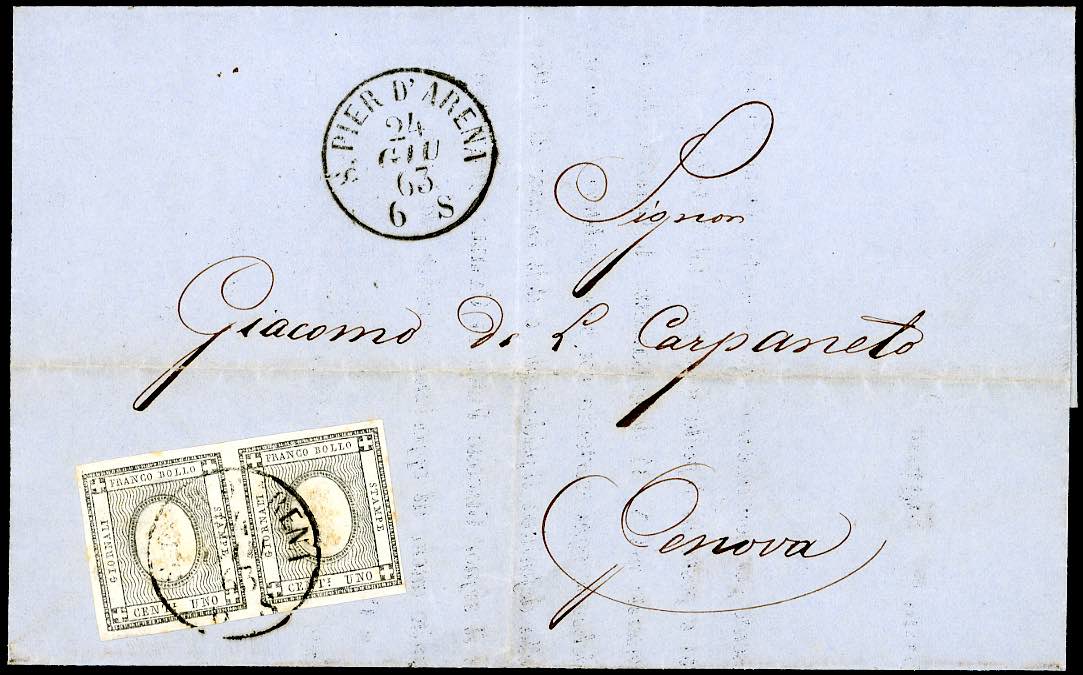 S. PIER D'ARENA
24
GIU
63
6 S
Signor
Giacomo di L Carpaneto
Genova
FRANCO BOLLO
GIORNALI
STAMPE
CENT. UNO
FRANCO BOLLO
GIORNALI
STAMPE
CENT. UNO
RENA